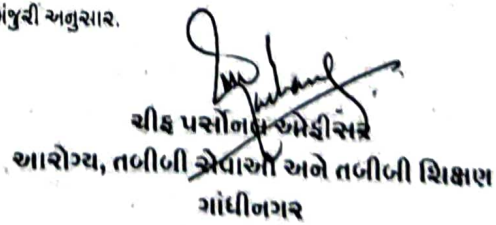 મંજુરી અનુસાર.
ચીફ પર્સોનલ ઓફીસર
આરોગ્ય, તબીબી સેવાઓ અને તબીબી શિક્ષણ
ગાંધીનગર